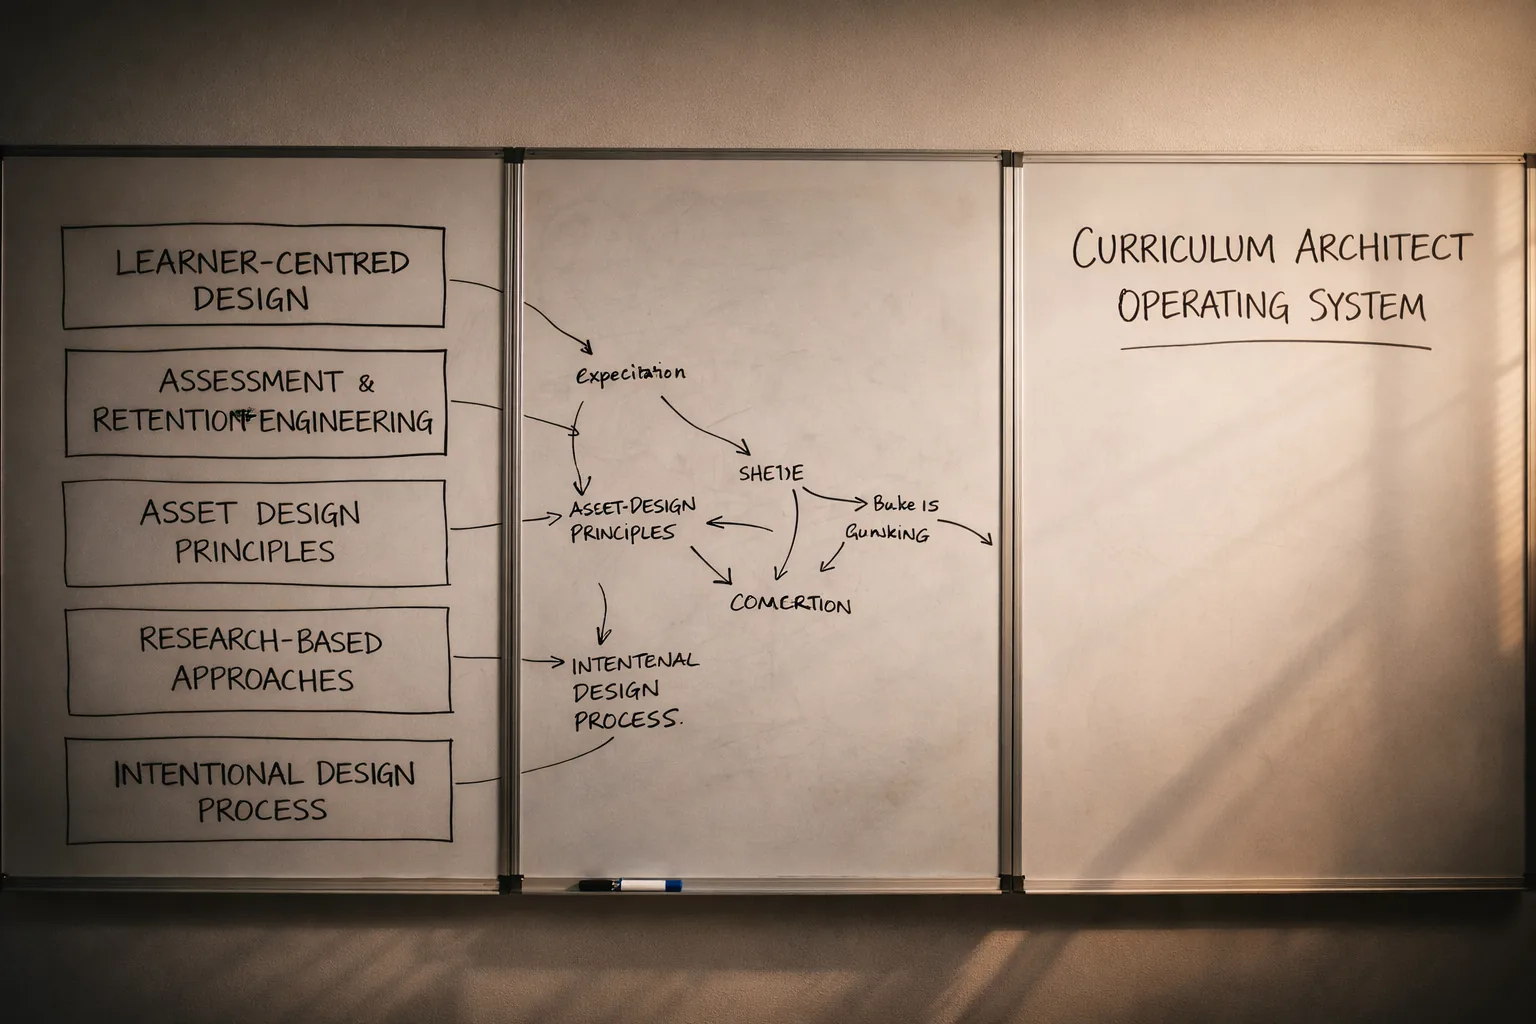 LEARNER-CENTRED
DESIGN
ASSESSMENT &
RETENTION ENGINEERING
ASSET DESIGN
PRINCIPLES
RESEARCH-BASED
APPROACHES
INTENTIONAL DESIGN
PROCESS
ASSET-DESIGN
PRINCIPLES
COMERTION
INTENTENAL
DESIGN
PROCESS.
CURRICULUM ARCHITECT
OPERATING SYSTEM